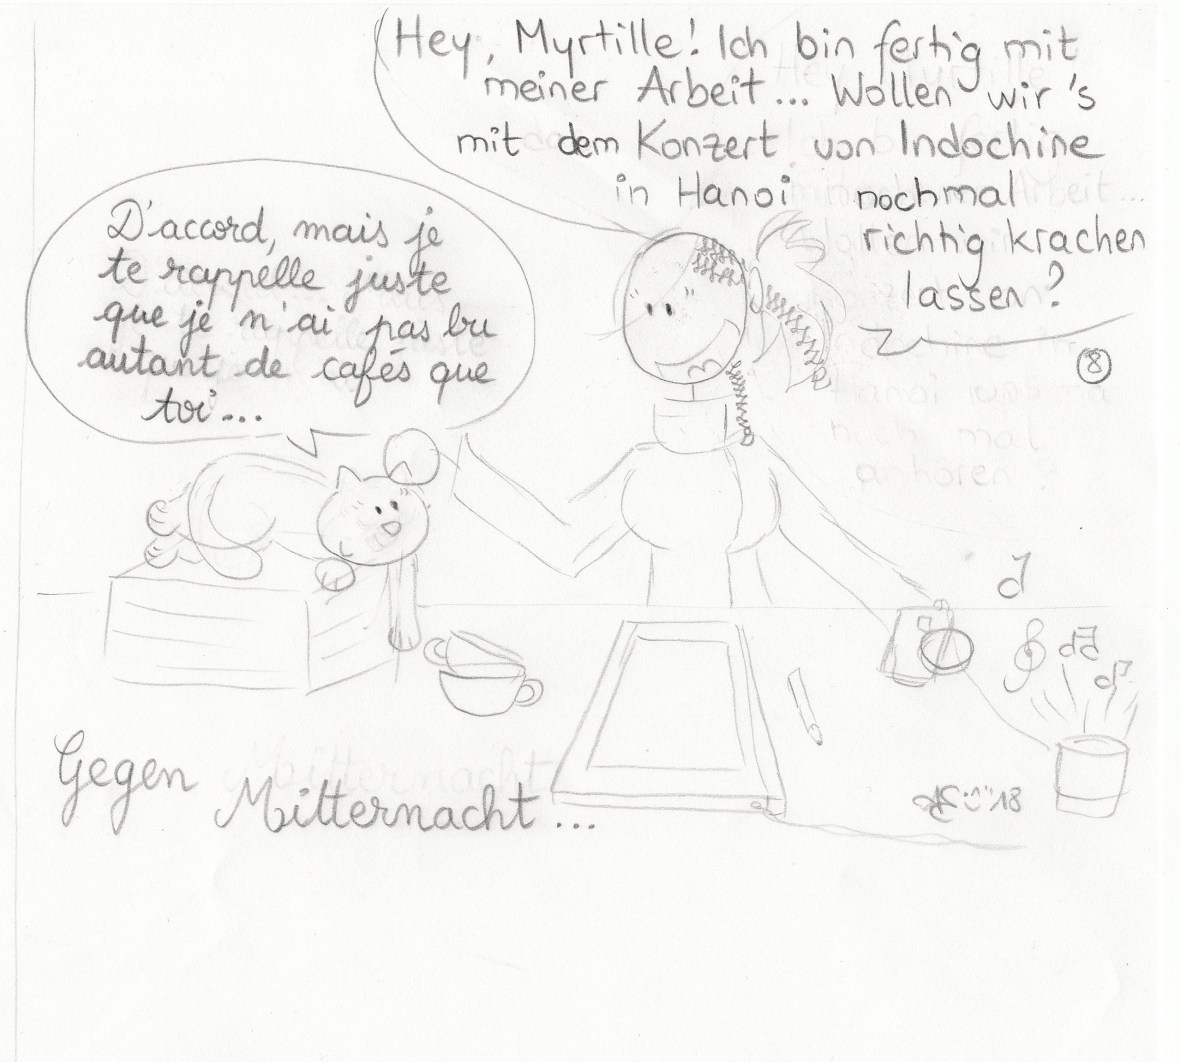 Hey, Myrtille! Ich bin fertig mit
meiner Arbeit... Wollen wir's
mit dem Konzert von Indochine
in Hanoi nochmal
richtig krachen
lassen?
8
D'accord, mais je
te rappelle juste
que je n'ai pas bu
autant de cafés que
toi...
Gegen
Mitternacht...
18